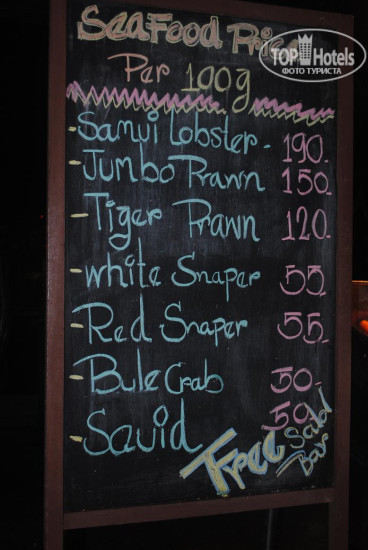 SeaFood Price
Per 100g
-Samui Lobster - 190.
-Jumbo Prawn 150.
-Tiger Prawn 120.
-white Snaper 55.
-Red Snaper 55.
-Bule Crab 50.-
-Squid 50.-
Free Salad Bar
TOP Hotels
ФОТО ТУРИСТА